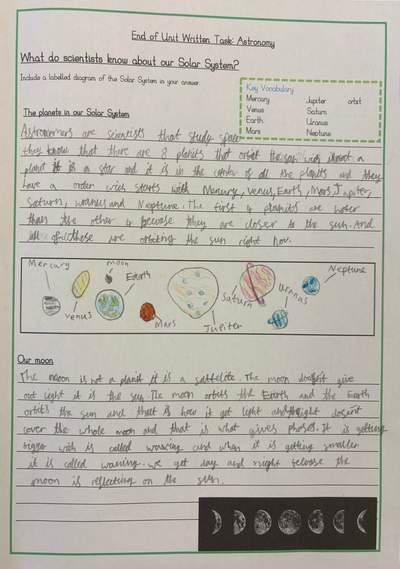 End of Unit Written Task: Astronomy
What do scientists know about our Solar System?
Include a labelled diagram of the Solar System in your answer.
Key Vocabulary
Mercury Jupiter orbit
Venus Saturn
Earth Uranus
Mars Neptune
The planets in our Solar System
Astronomers are scientists that study space
they know that there are 8 planets that orbit the sun wich is not a
planet it is a star and it is in the center of all the planets and they
have a order wich starts with Mercury, Venus, Earth, Mars Jupiter,
Saturn, and Neptune. The first 4 planets are hoter
than the other 4 becuase they are closer to the sun. And
all of these are orbiting the sun right now.
Mercury
moon
Earth
Venus
Mars
Jupiter
Saturn
Uranus
Neptune
Our moon
The moon is not a planet it is a The moon doesn't give
out light it is the sun. The moon orbits the Earth and the Earth
orbits the sun and that is how it get light and the light doesnt
cover the whole moon and that is what gives phases. It is getting
bigger wich is called and when it is getting smaller
it is called waning. We get day and night the
moon is reflecting on the sun.